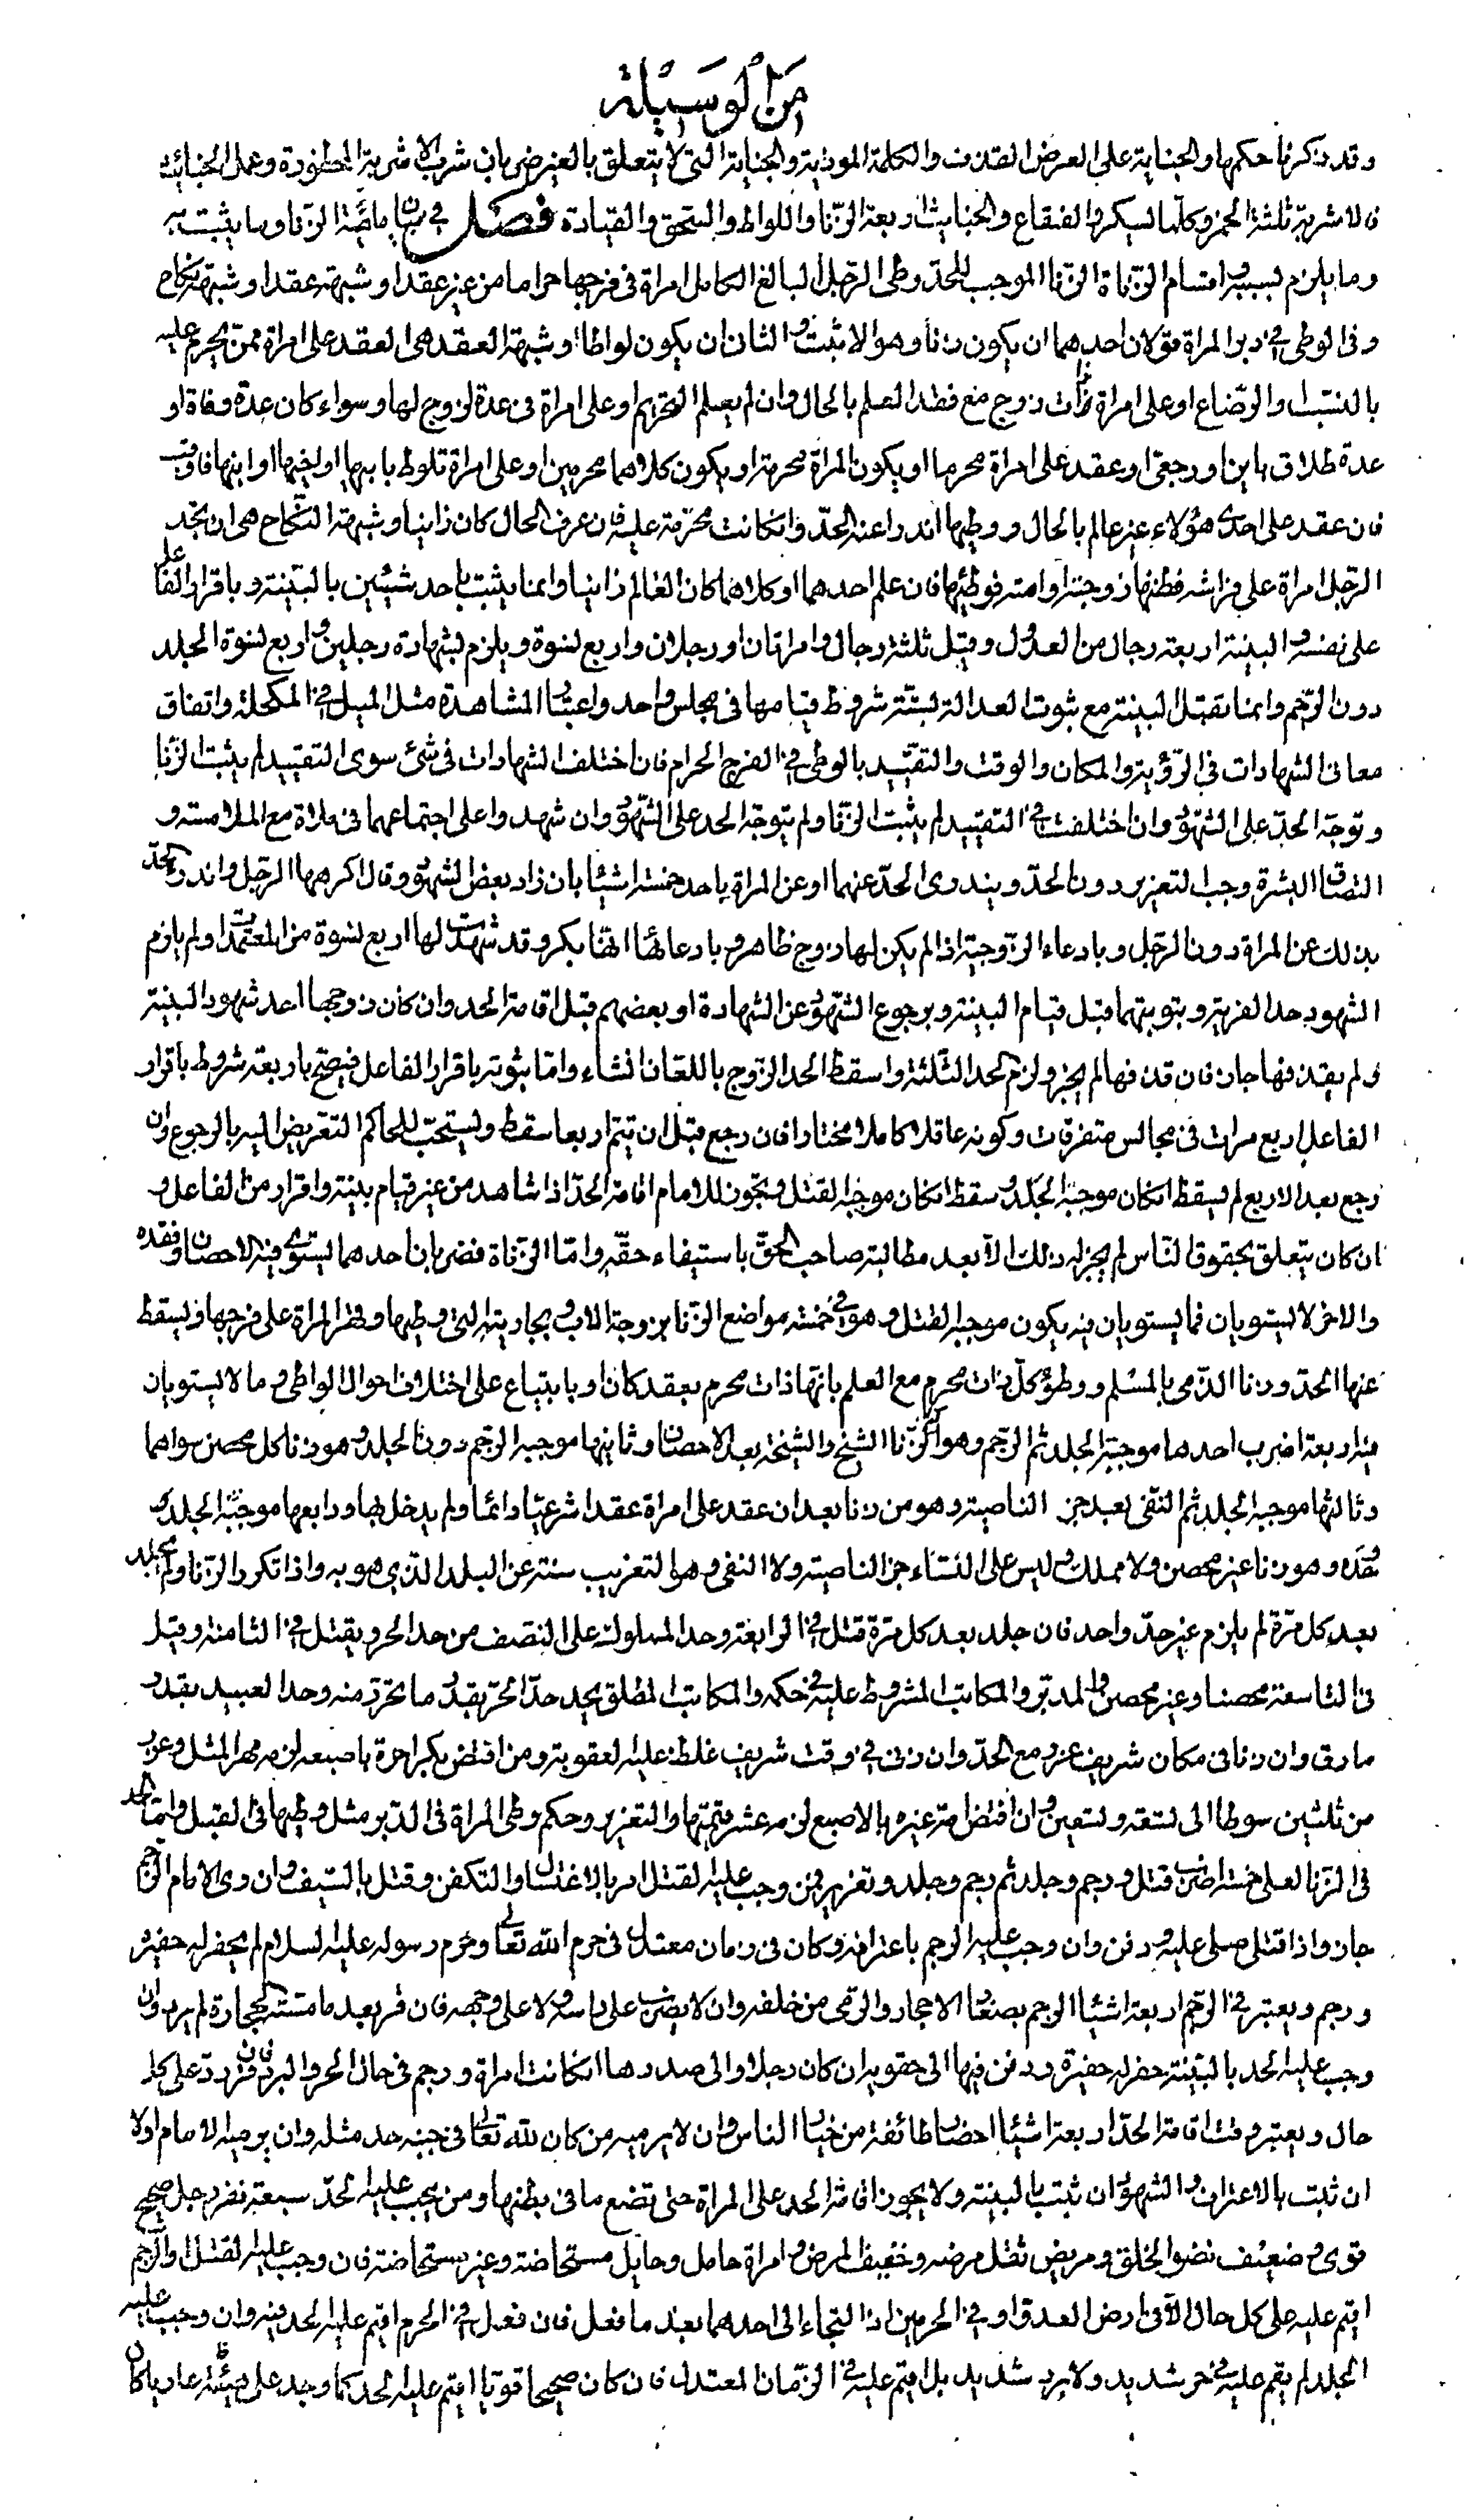 من الوسيلة
وقد ذكرنا حكمها والجناية على العرض القذف والكلمة الموذية والجناية التي لا يتعلق بالغير ضربان شرب الاشربة المحظورة وعمل الخبائث
فالاشربة ثلثة الخمر وكلما يسكر والفقاع والخبايث اربعة الزنا واللواط والسحق والقيادة فصل في بيان ماهية الزنا وما يثبت به
وما يلزم بسببه واقسام الزناة الزنا الموجب للحد وطى الرجل البالغ الكامل امراة في فرجها حراما من غير عقد او شبهة عقد او شبهة نكاح
وفى الوطى في دبر المراة قولان احدهما ان يكون زنا وهو الاثبت والثانى ان يكون لواطا وشبهة العقد هى العقد على امراة ممن يحرم عليه
بالنسب او الرضاع او على امراة ذات زوج مع فقد العلم بالحال وان لم يعلم التحريم او على امراة فى عدة لزوج لها وسواء كان عدة وفاة او
عدة طلاق باين او رجعى او عقد على امراة محرما او يكون المراة محرمة او يكون كلاهما محرمين او على امراة تلوط بابيها او اخيها او ابنها فاوقب
فان عقد على احدى هؤلاء غير عالم بالحال ووطيها اندرا عنه الحد وان كانت محرمة عليه فان عرف الحال كان زانيا وشبهة النكاح هى ان يجد
الرجل امراة على فراشه فظنها زوجته او امته فوطئها فان علم احدهما او كلاهما كان العالم زانيا وانما يثبت باحد شيئين بالبينة وباقرار الفاعل
على نفسه والبينة اربعة رجال من العدول وقيل ثلثة رجال وامراتان او رجلان واربع نسوة ويلزم بشهادة رجلين واربع نسوة الجلد
دون الرجم وانما تقبل البينة مع ثبوت العدالة بستة شروط قيامها فى مجلس واحد واعتبار المشاهدة مثل الميل في المكحلة واتفاق
معانى الشهادات فى الرؤية والمكان والوقت والتقييد بالوطى في الفرج الحرام فان اختلف الشهادات فى شئ سوى التقييد لم يثبت الزنا
وتوجه الحد على الشهود وان اختلفت في التقييد لم يثبت الزنا ولم يتوجه الحد على الشهود وان شهدوا على اجتماعهما فى ملاة مع الملامسة و
التصاق البشرة وجب التعزير دون الحد ويندرى الحد عنهما او عن المراة باحد خمسة اشياء بان زاد بعض الشهود وقال اكرهها الرجل واندر الحد
بذلك عن المراة دون الرجل وبادعاء الزوجية اذا لم يكن لها زوج ظاهر وبادعائها انها بكر وقد شهدت لها اربع نسوة من المعتمدات ولم يلزم
الشهود حد الفرية وبتوبتهما قبل قيام البينة وبرجوع الشهود عن الشهادة او بعضهم قبل اقامة الحد وان كان زوجها احد شهود البينة
ولم يقذفها جاز فان قذفها لم يجز ولزم الحد الثلثة واسقط الحد الزوج باللعان ان شاء واما ثبوته باقرار الفاعل فيصح باربعة شروط باقرار
الفاعل اربع مرات فى مجالس متفرقات وكونه عاقلا كاملا مختارا فان رجع قبل ان يتم اربعا سقط ويستحب للحاكم التعريض اليه بالرجوع وان
رجع بعد الاربع لم يسقط ان كان موجبه الجلد وسقط ان كان موجبه القتل ويجوز للامام اقامة الحد اذا شاهد من غير قيام بينة واقرار من الفاعل و
ان كان يتعلق بحقوق الناس لم يجز له ذلك الا بعد مطالبة صاحب الحق باستيفاء حقه واما الزناة فضربان احدهما يستوى فيه الاحصان وفقده
والاخر لا يستويان فما يستويان فيه يكون موجبه القتل وهو في خمسة مواضع الزنا بزوجة الاب وبجاريته التى وطيها وقهر المراة على فرجها ويسقط
عنها الحد وزنا الذمى بالمسلم ووطؤ كل ذات محرم مع العلم بانها ذات محرم بعقد كان او بابتياع على اختلاف احوال الواطى وما لا يستويان
فيه اربعة اضرب احدها موجبه الجلد ثم الرجم وهو زنا الشيخ والشيخة بعد الاحصان وثانيها موجبه الرجم دون الجلد وهو زنا كل محصن سواهما
وثالثها موجبه الجلد ثم النفى بعد جز الناصية وهو من زنا بعد ان عقد على امراة عقدا شرعيا دائما ولم يدخل بها ورابعها موجبه الجلد
وحده وهو زنا غير محصن ولا مملك وليس على النساء جز الناصية ولا النفى وهو التغريب سنة عن البلد الذى هو به واذا تكرر الزنا ولم يجلد
بعد كل مرة لم يلزم غير حد واحد فان جلد بعد كل مرة قتل في الرابعة وحد المملوك على النصف من حد الحر ويقتل في الثامنة وقيل
فى التاسعة محصنا وغير محصن والمدبر والمكاتب المشروط عليه في حكمه والمكاتب المطلق يحد حد الحر بقدر ما تحرر منه وحد العبيد بقدر
ما رق وان زنا فى مكان شريف عزر مع الحد وان زنى في وقت شريف غلظ عليه العقوبة ومن افتض بكرا حرة باصبعه لزمه مهر المثل وعزر
من ثلثين سوطا الى تسعة وتسعين وان افتض امة غيره بالاصبع لزمه عشر قيمتها والتعزير وحكم وطى المراة فى الدبر مثل وطيها فى القبل واما الحد
فى الزنا فعلى خمسة اضرب قتل ورجم وجلد ثم رجم وجلد وتعزير فمن وجب عليه القتل امر بالاغتسال والتكفن وقتل بالسيف وان راى الامام الرجم
جاز واذا قتل صلى عليه ودفن وان وجب عليه الرجم باعترافه وكان فى زمان معتدل فى حرم الله تعالى وحرم رسوله عليه السلام لم يحفر له حفيرة
ورجم ويعتبر في الرجم اربعة اشياء الرجم بصغار الاحجار والرمى من خلفه وان لا يضرب على راسه ولا على وجهه فان فر بعد ما مسته الحجارة لم يرد وان
وجب عليه الحد بالبينة حفر له حفيرة ودفن فيها الى حقويه ان كان رجلا والى صدرها ان كانت امراة ورجم فى حال الحر والبرد فان فر رد على كل
حال ويعتبر وقت اقامة الحد اربعة اشياء احضار طائفة من خيار الناس وان لا يرميه من كان لله تعالى فى جنبه حد مثله وان يرميه الامام اولا
ان ثبت بالاعتراف والشهود ان ثبت بالبينة ولا يجوز اقامة الحد على المراة حتى تضع ما فى بطنها ومن يجب عليه الحد سبعة نفر رجل صحيح
قوى وضعيف نضو الخلق ومريض ثقل مرضه وخفيف المرض وامراة حامل وحايل مستحاضة وغير مستحاضة فان وجب عليه القتل او الرجم
اقيم عليه على كل حال الا فى ارض العدو او في الحرمين اذا التجاء الى احدهما بعد ما فعل فان فعل في الحرم اقيم عليه الحد فيه وان وجب عليه
الجلد لم يقم عليه في حر شديد ولا برد شديد بل اقيم عليه في الزمان المعتدل فان كان صحيحا قويا اقيم عليه الحد كما وجد على هيئة عاريا كان